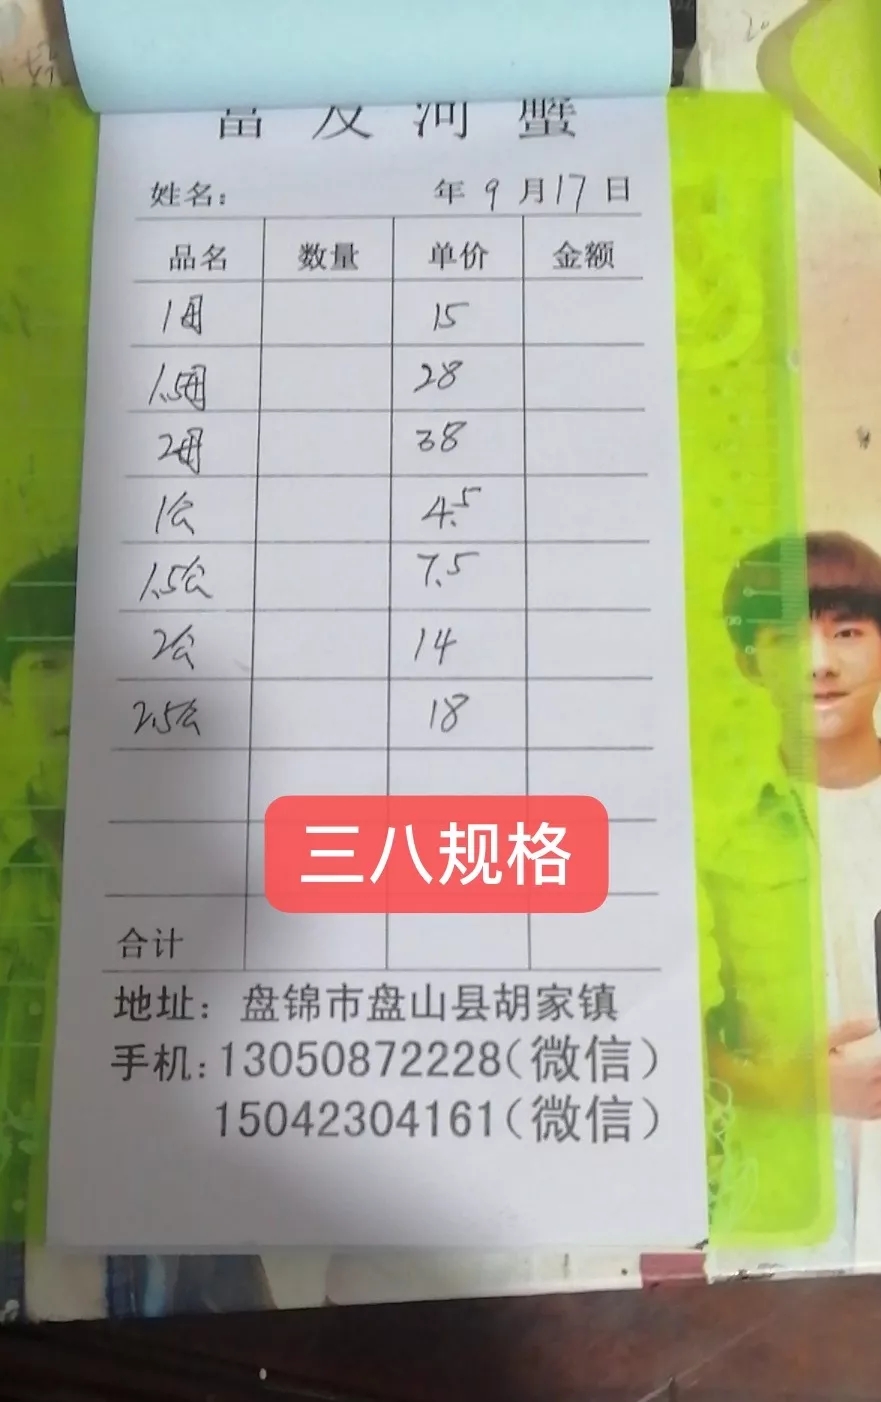 富友河蟹
姓名： 年 9 月 17 日
品名 数量 单价 金额
1母 15
1.5母 28
2母 38
1公 4.5
1.5公 7.5
2公 14
2.5公 18
三八规格
合计
地址：盘锦市盘山县胡家镇
手机：13050872228（微信）
15042304161（微信）